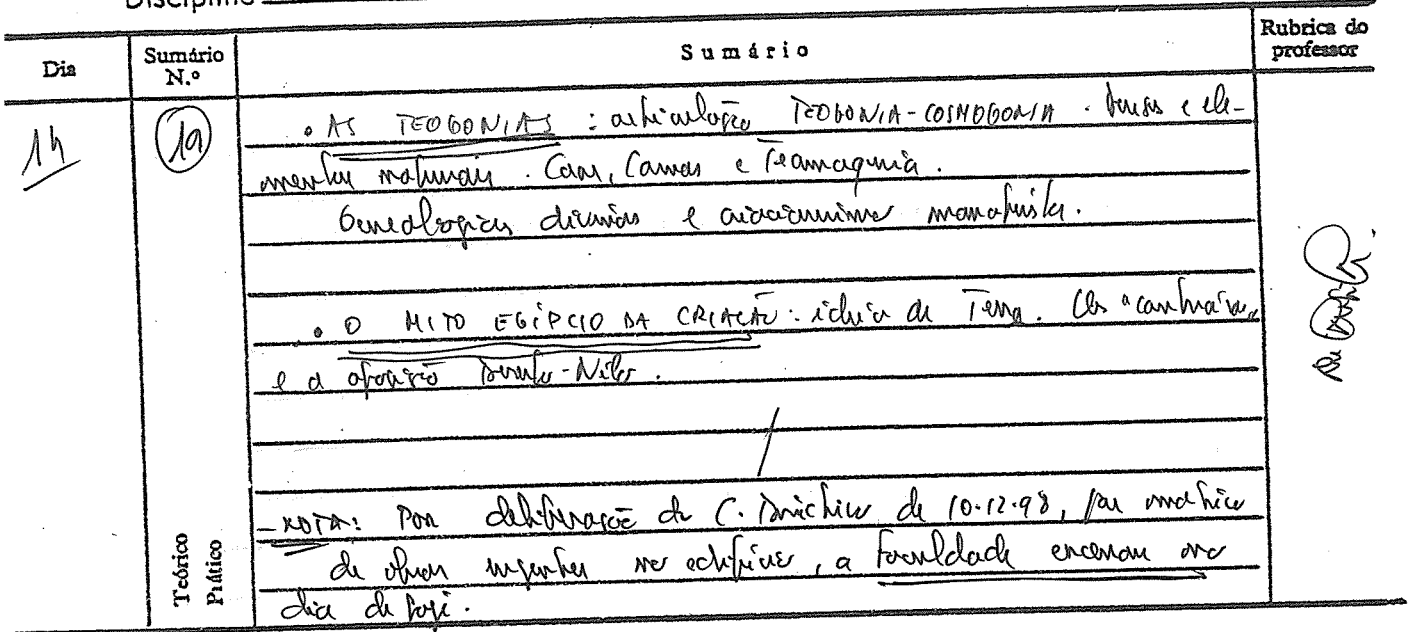 Disciplina
Dia
Sumário N.º
Sumário
Rubrica do professor
14
19
• AS TEOGONIAS : articulação TEOGONIA-COSMOGONIA . Deuses e ele-
mentos naturais . Caos, Cosmos e Teomaquia .
Genealogias divinas e monoteísta.
• O MITO EGÍPCIO DA CRIAÇÃO : ideia de Terra . Os "contrários"
e a oposição Deserto-Nilo .
- NOTA: Por deliberação do C. Directivo de 10.12.98, por motivo
de obras urgentes no edifício, a Faculdade encerrou no
dia de hoje .
Teórico
Prático